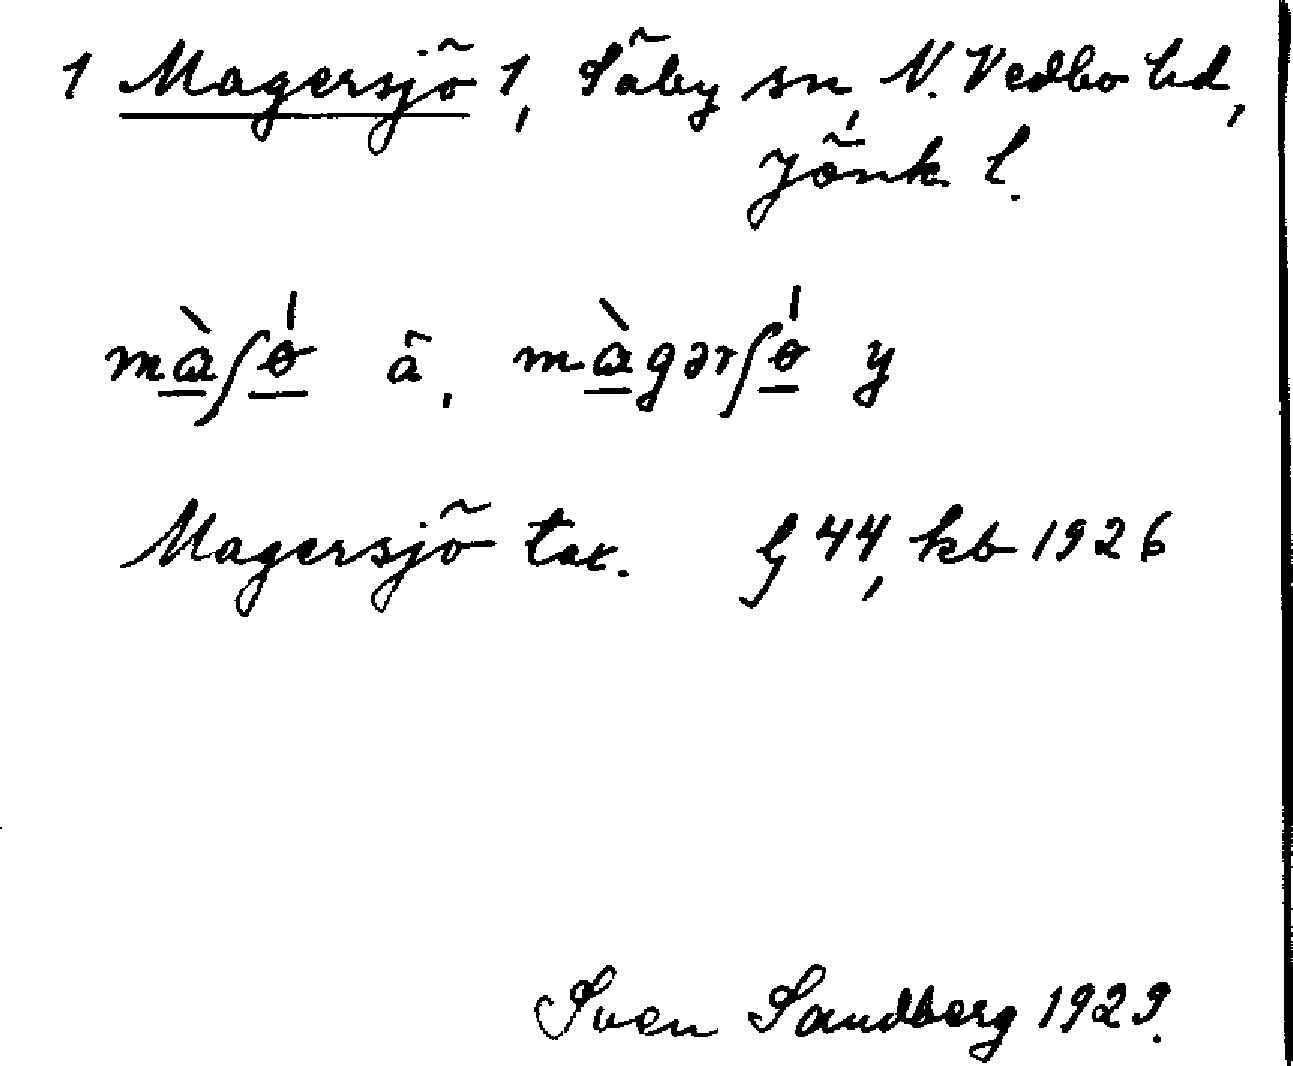 1 Magersjö 1, Säby sn, N. Vedbo hd,
Jönk l.
màʃǿ ä, màgərʃǿ y
Magersjö tax. Lj 44, kb 1926
Sven Sandberg 1929.